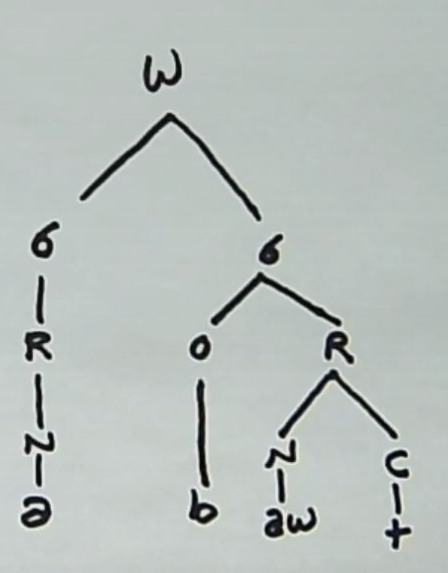 ω
σ σ
R O R
N N C
a b aw t